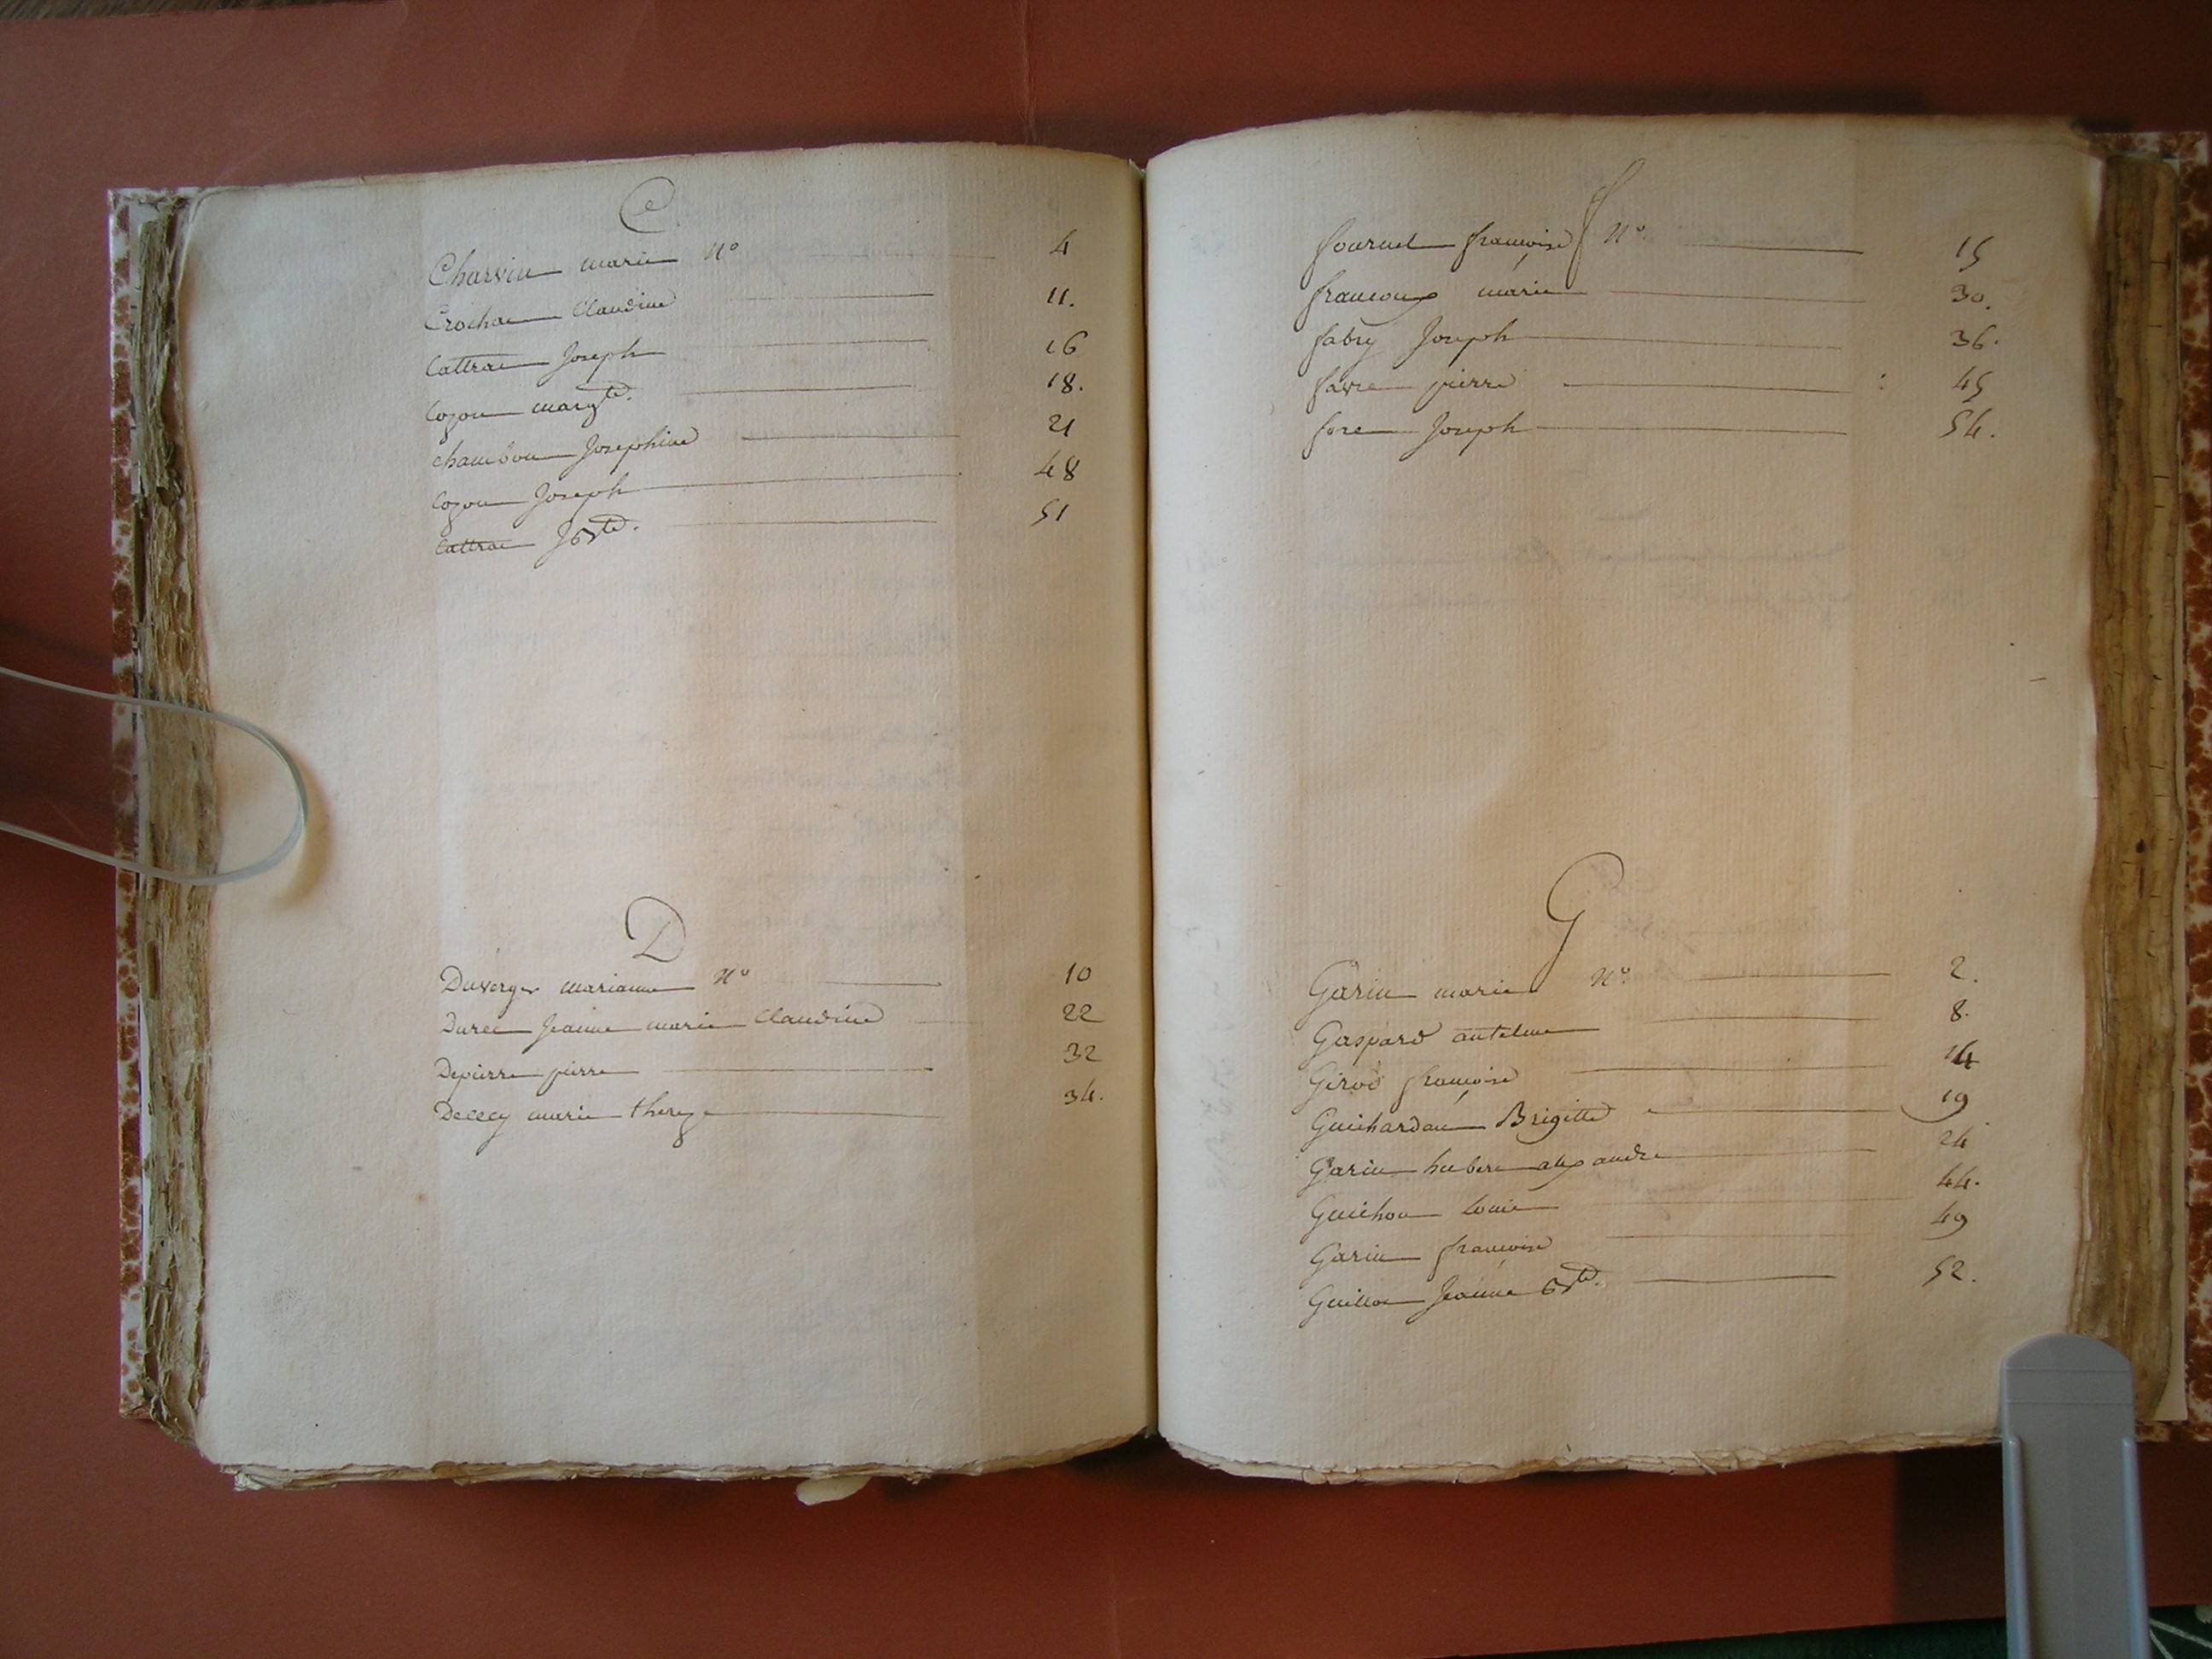 C
Charvin marie N° 4
Crochat Claudine 11.
Cattrat Joseph 16
Cozon margte. 18.
Chambon Josephine 21
Cozon Joseph 48
Cattrat Jos 51
D
Duverger marianne N° 10
Duret Jeanne marie Claudine 22
Depierre pierre 32
Decey marie therese 34.
f
fournet françoise N° 15
francoux marie 30.
fabry Joseph 36.
favre pierre 45
foret Joseph 54.
G
Garin marie N° 2.
Gaspard antelme 8.
Girod françoise 14
Guichardan Brigitte 19
Garin hubert alexandre 24
Guichon Louis 44.
Garin françoise 49
Guillot Jeanne 52.